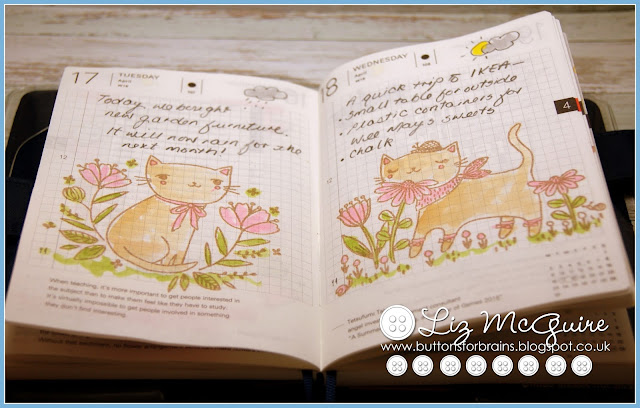 17
TUESDAY
April
Today, we bought
new garden furniture.
It will now rain for the
next month!
12
18
When teaching, it's more important to get people interested in
the subject than to make them feel like they have to study.
It's virtually impossible to get people involved in something
they don't find interesting.
18
WEDNESDAY
April
A quick trip to IKEA—
• small table for outside
• plastic containers for
wee May's sweets
• chalk
4
12
consultant
of Games 2015"
"A Summer
Liz McGuire
www.buttonsforbrains.blogspot.co.uk